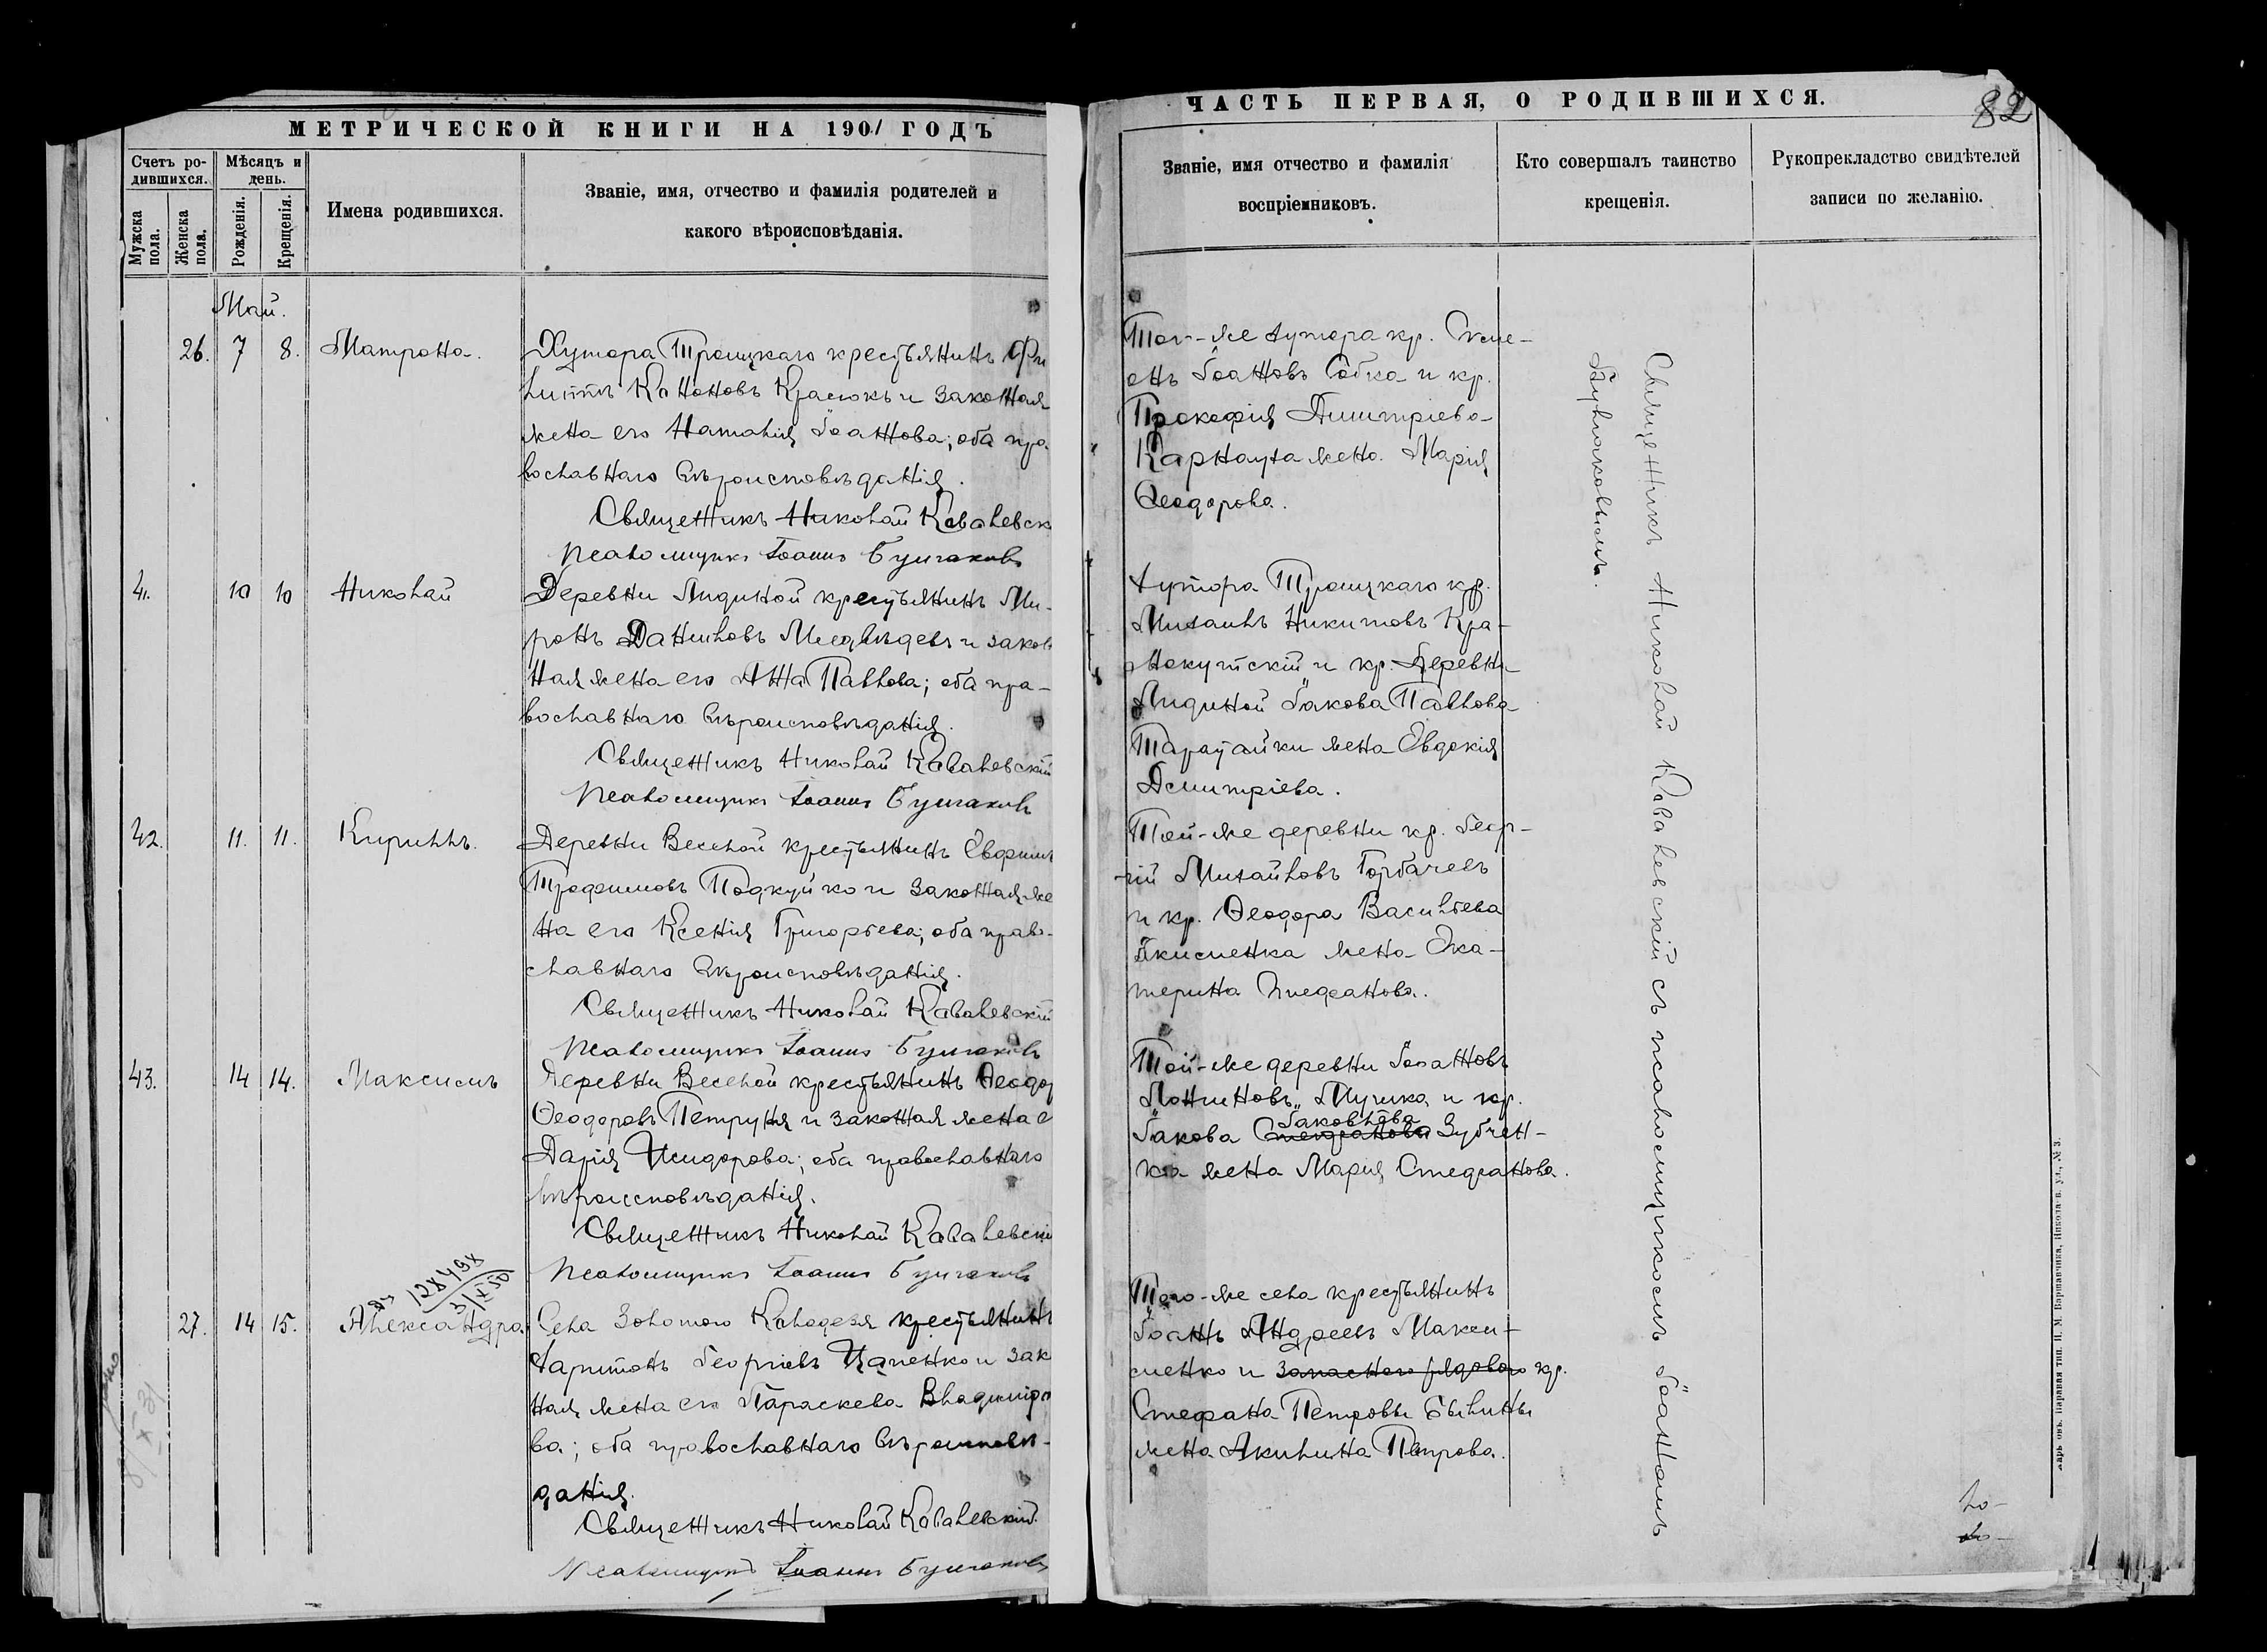 МЕТРИЧЕСКОЙ КНИГИ НА 1901 ГОДЪ
Счетъ ро-
дившихся.
Мужска
пола.
Женска
пола.
Мѣсяцъ и
день.
Рожденія.
Крещенія.
Имена родившихся.
Званіе, имя, отчество и фамилія родителей и
какого вѣроисповѣданія.
Май.
26. 7 8. Матрона.
Хутора Троицкаго крестьянинъ Фи
липпъ Кононовъ Красюкъ и законная
жена его Наталія Іоаннова; оба пра
вославнаго вѣроисповѣданія.
Священникъ Николай Ковалевск
Псаломщикъ Іоаннъ Булгаковъ
41. 10 10 Николай
Деревни Лидиной крестьянинъ Ми-
ронъ Даниловъ Медвѣдевъ и закон
ная жена его Анна Павлова; оба пра-
вославнаго вѣроисповѣданія.
Священникъ Николай Ковалевскій
Псаломщикъ Іоаннъ Булгаковъ
42. 11. 11. Кириллъ.
Деревни Веселой крестьянинъ Евфимъ
Трофимовъ Подкуйко и законная же
на его Ксенія Григорьева; оба право-
славнаго вѣроисповѣданія.
Священникъ Николай Ковалевскій
Псаломщикъ Іоаннъ Булгаковъ
43. 14 14. Максимъ
Деревни Веселой крестьянинъ Ѳеодор
Ѳеодоровъ Петруня и законная жена е
Дарія Исидорова; оба православнаго
вѣроисповѣданія.
Священникъ Николай Ковалевскій
Псаломщикъ Іоаннъ Булгаковъ
27. 14 15. Александра
Села Золотого Колодезя крестьянинъ
Харитонъ Георгіевъ Цапенко и зак
ная жена его Параскева Владиміро
ва; оба православнаго вѣроисповѣ-
данія.
Священникъ Николай Ковалевскій.
Псаломщикъ Іоаннъ Булгаковъ
ЧАСТЬ ПЕРВАЯ, О РОДИВШИХСЯ.
82
Званіе, имя отчество и фамилія
воспріемниковъ.
Кто совершалъ таинство
крещенія.
Рукоприкладство свидѣтелей
записи по желанію.
Того-же хутора кр. Симе-
онъ Іоанновъ Собка и кр.
Прокофія Димитріева
Карнауха жена Марія
Ѳеодорова.
Хутора Троицкаго кр.
Михаилъ Никитовъ Кра-
нокутскій и кр. деревни
Лидиной Іакова Павлова
Таратайки жена Евдокія
Димитріева.
Той-же деревни кр. Геор-
гій Михайловъ Горбачевъ
и кр. Ѳеодора Васильева
Якименка жена Ека-
терина Стефанова.
Той-же деревни Іоаннъ
Лонгиновъ Мушка и кр.
Іакова Іаковлева Зубчен-
ка жена Марія Стефанова.
Того-же села крестьянинъ
Іоаннъ Андреевъ Макси-
менко и запаснаго рядового кр.
Стефана Петровы Былины
жена Акилина Петрова.
Священникъ Николай Ковалевскій съ псаломщикомъ Іоанномъ
Булгаковымъ.